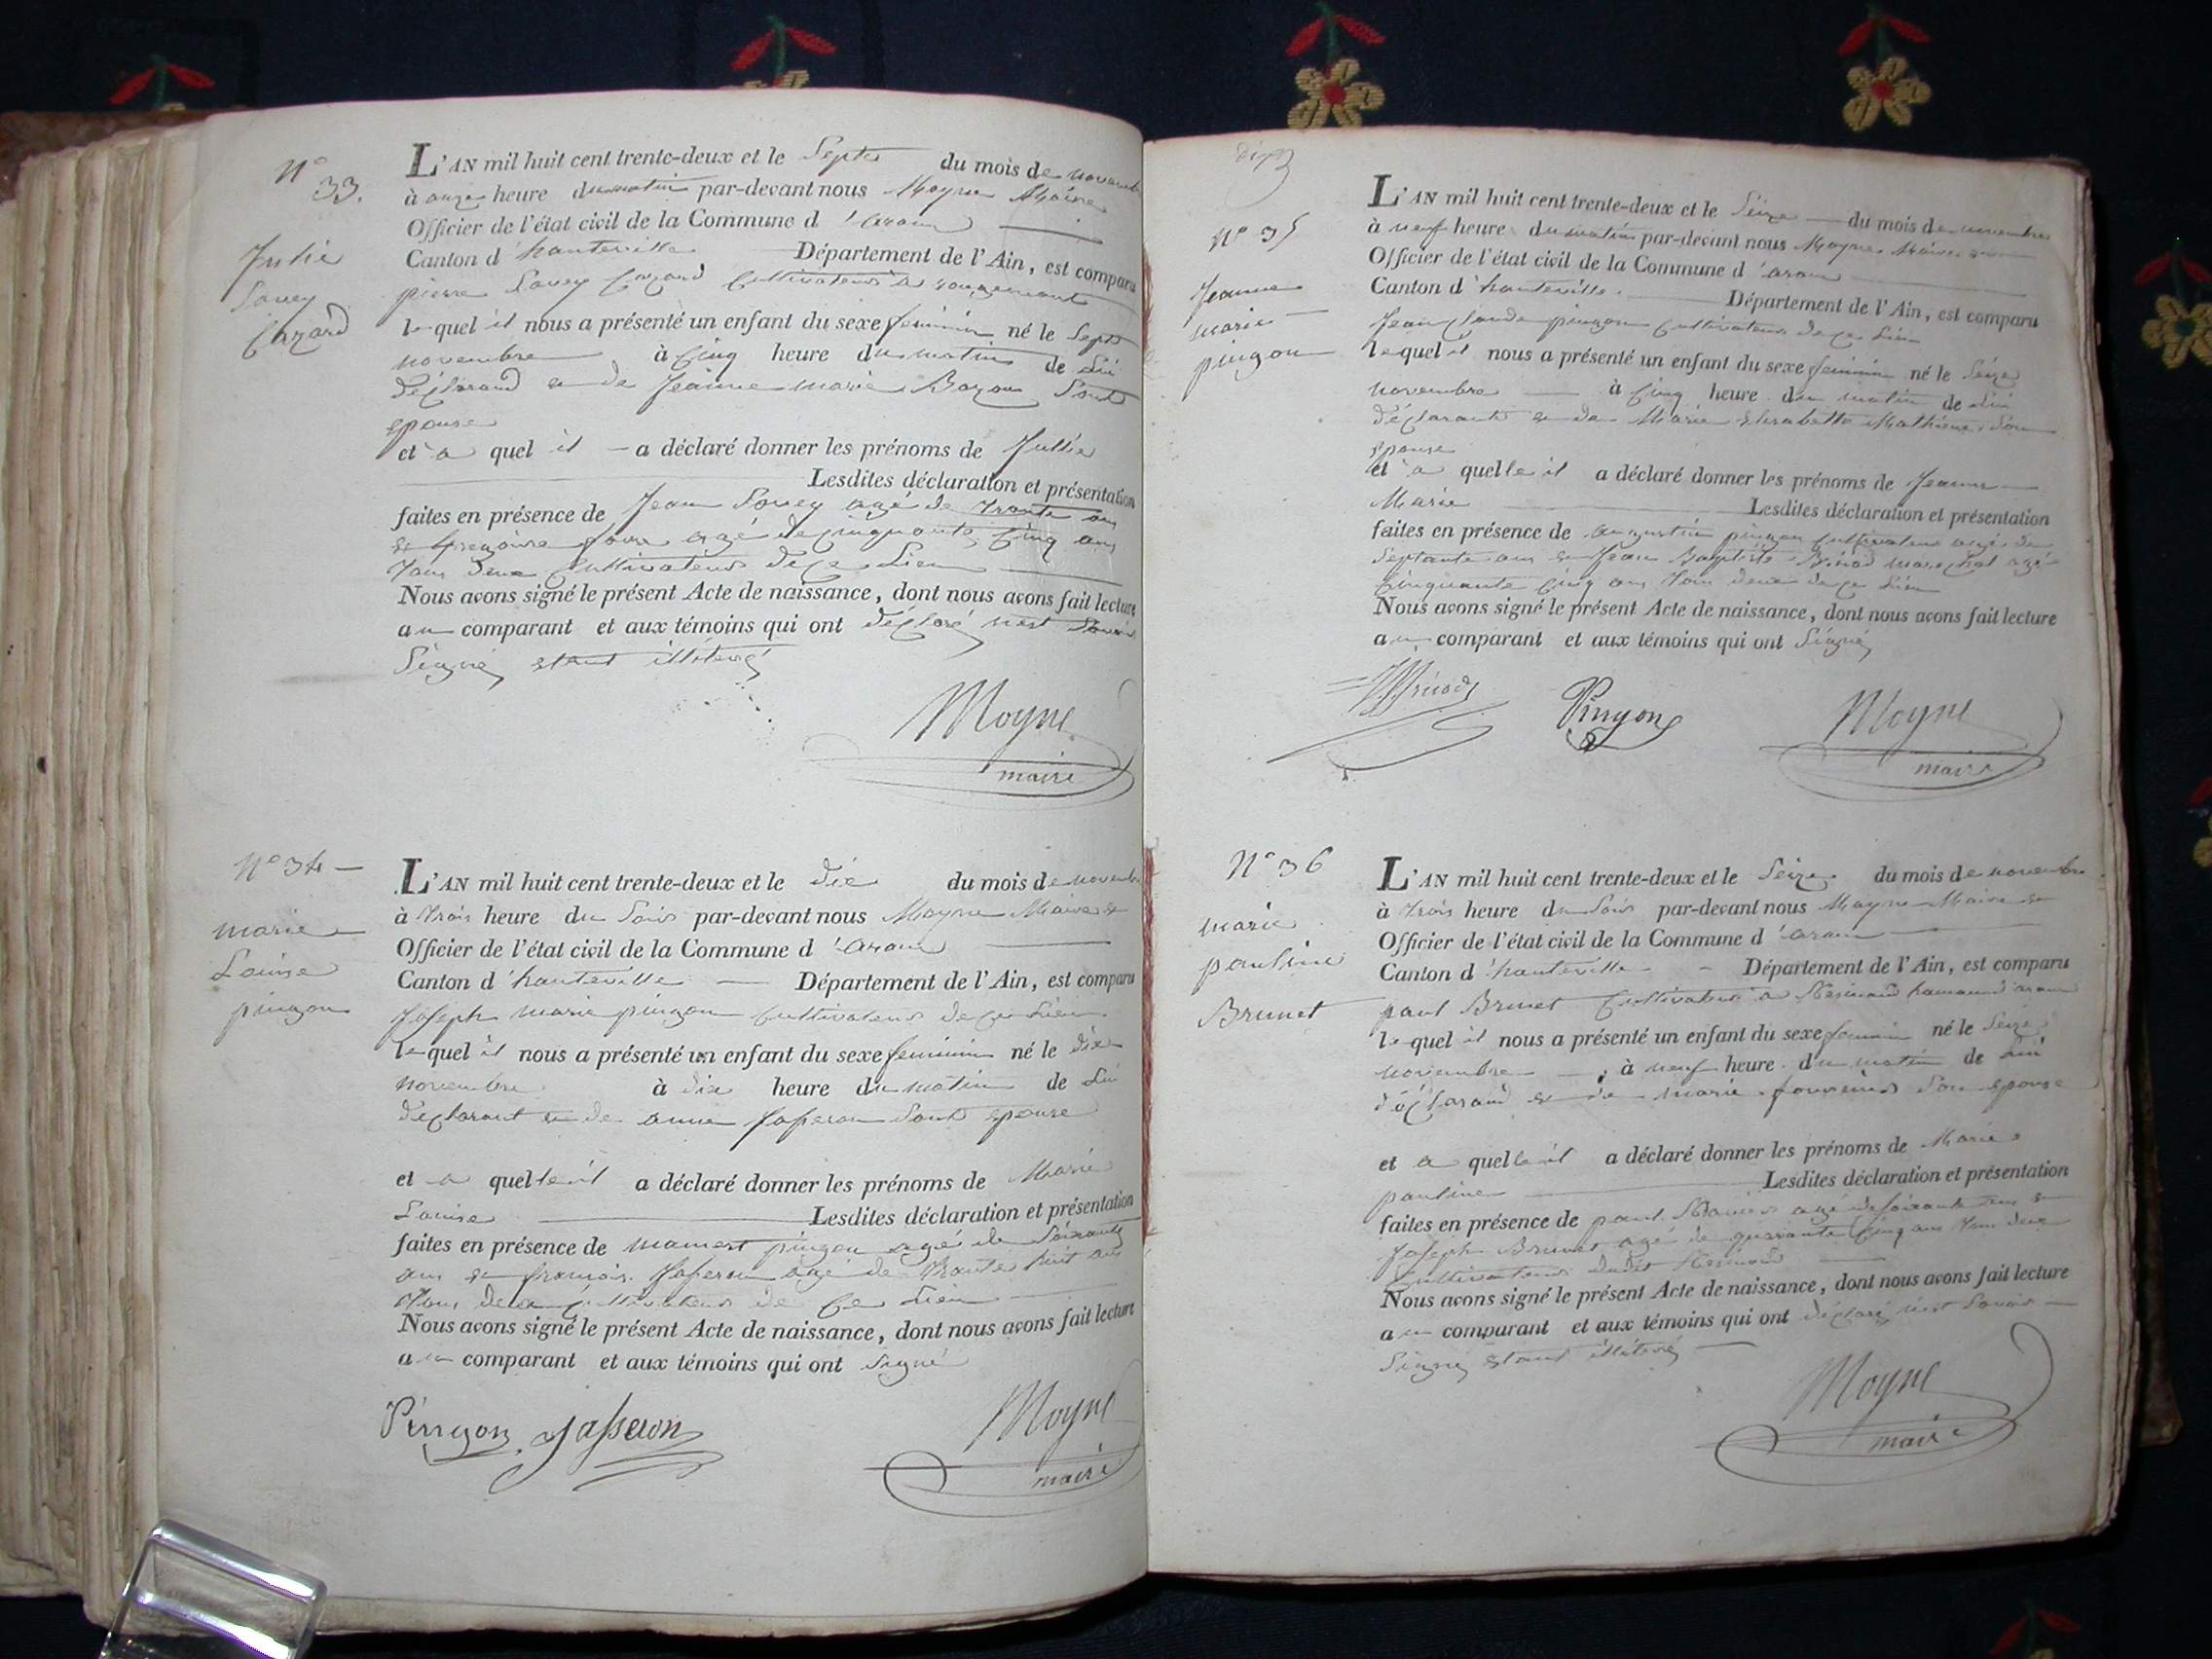 N°
33.
Julie
Savey
Cazard
L'AN mil huit cent trente-deux et le Septe du mois de novembre
à onze heure du matin par-devant nous Moyne Maire
Officier de l'état civil de la Commune d'aranc
Canton d'hauteville Département de l'Ain, est comparu
pierre Savey Cazard Cultivateur à rougemont
lequel il nous a présenté un enfant du sexe feminin né le Septe
novembre à Cinq heure du matin de Lui
déclarand et de Jeanne marie Bozon Sont
epouse
et a quel il a déclaré donner les prénoms de Jullie
Lesdites déclaration et présentation
faites en présence de Jean Savey agé de trante ans
et Gregoire agé de Cinquante Cinq ans
tous deux Cultivateurs de Ce Lieu
Nous avons signé le présent Acte de naissance, dont nous avons fait lecture
au comparant et aux témoins qui ont déclaré n'est Savoir
Signé etant illiteré
Moyne
maire
N° 34
marie
Louise
pingon
L'AN mil huit cent trente-deux et le dix du mois de novembre
à trois heure du Soir par-devant nous Moyne Maire et
Officier de l'état civil de la Commune d'aranc
Canton d'hauteville Département de l'Ain, est comparu
Joseph marie pingon Cultivateur de Ce Lieu
lequel il nous a présenté un enfant du sexe feminin né le dix
novembre à dix heure du matin de Lui
déclarant et de anne Jasseron Sont epouse
et a quelle il a déclaré donner les prénoms de Marie
Louise Lesdites déclaration et présentation
faites en présence de mamert pingon agé de Soixante
ans et francois Jasseron agé de trante huit ans
tous deux Cultivateurs de Ce Lieu
Nous avons signé le présent Acte de naissance, dont nous avons fait lecture
au comparant et aux témoins qui ont Signé
Pingon Jasseron Moyne
maire
N° 35
Jeanne
marie
pingon
L'AN mil huit cent trente-deux et le Seize du mois de novembre
à neuf heure du matin par-devant nous Moyne Maire
Officier de l'état civil de la Commune d'aranc
Canton d'hauteville Département de l'Ain, est comparu
Jean Claude pingon Cultivateur de Ce Lieu
lequel il nous a présenté un enfant du sexe feminin né le Seize
novembre à Cinq heure du matin de Lui
déclarant et de Marie Elisabette Mathieu Son
epouse
et a quelle il a déclaré donner les prénoms de Jeanne
Marie Lesdites déclaration et présentation
faites en présence de augustin pingon Cultivateur agé de
Septante ans et Jean Baptiste Brinod marechal agé
Cinquante Cinq ans tous deux de Ce Lieu
Nous avons signé le présent Acte de naissance, dont nous avons fait lecture
au comparant et aux témoins qui ont Signé
Pingon Moyne
maire
N° 36
marie
pauline
Brunet
L'AN mil huit cent trente-deux et le Seize du mois de novembre
à trois heure du Soir par-devant nous Moyne Maire et
Officier de l'état civil de la Commune d'aranc
Canton d'hauteville Département de l'Ain, est comparu
paul Brunet Cultivateur a hameau d'aranc
lequel il nous a présenté un enfant du sexe feminin né le Seize
novembre à neuf heure du matin de Lui
déclarand et de marie Son epouse
et a quelle il a déclaré donner les prénoms de Marie
pauline Lesdites déclaration et présentation
faites en présence de paul agé de Soixante ans et
Joseph Brunet agé de quarante Cinq ans tous deux
Cultivateurs dudit
Nous avons signé le présent Acte de naissance, dont nous avons fait lecture
au comparant et aux témoins qui ont déclaré n'est Savoir
Signé etant illiteré
Moyne
maire